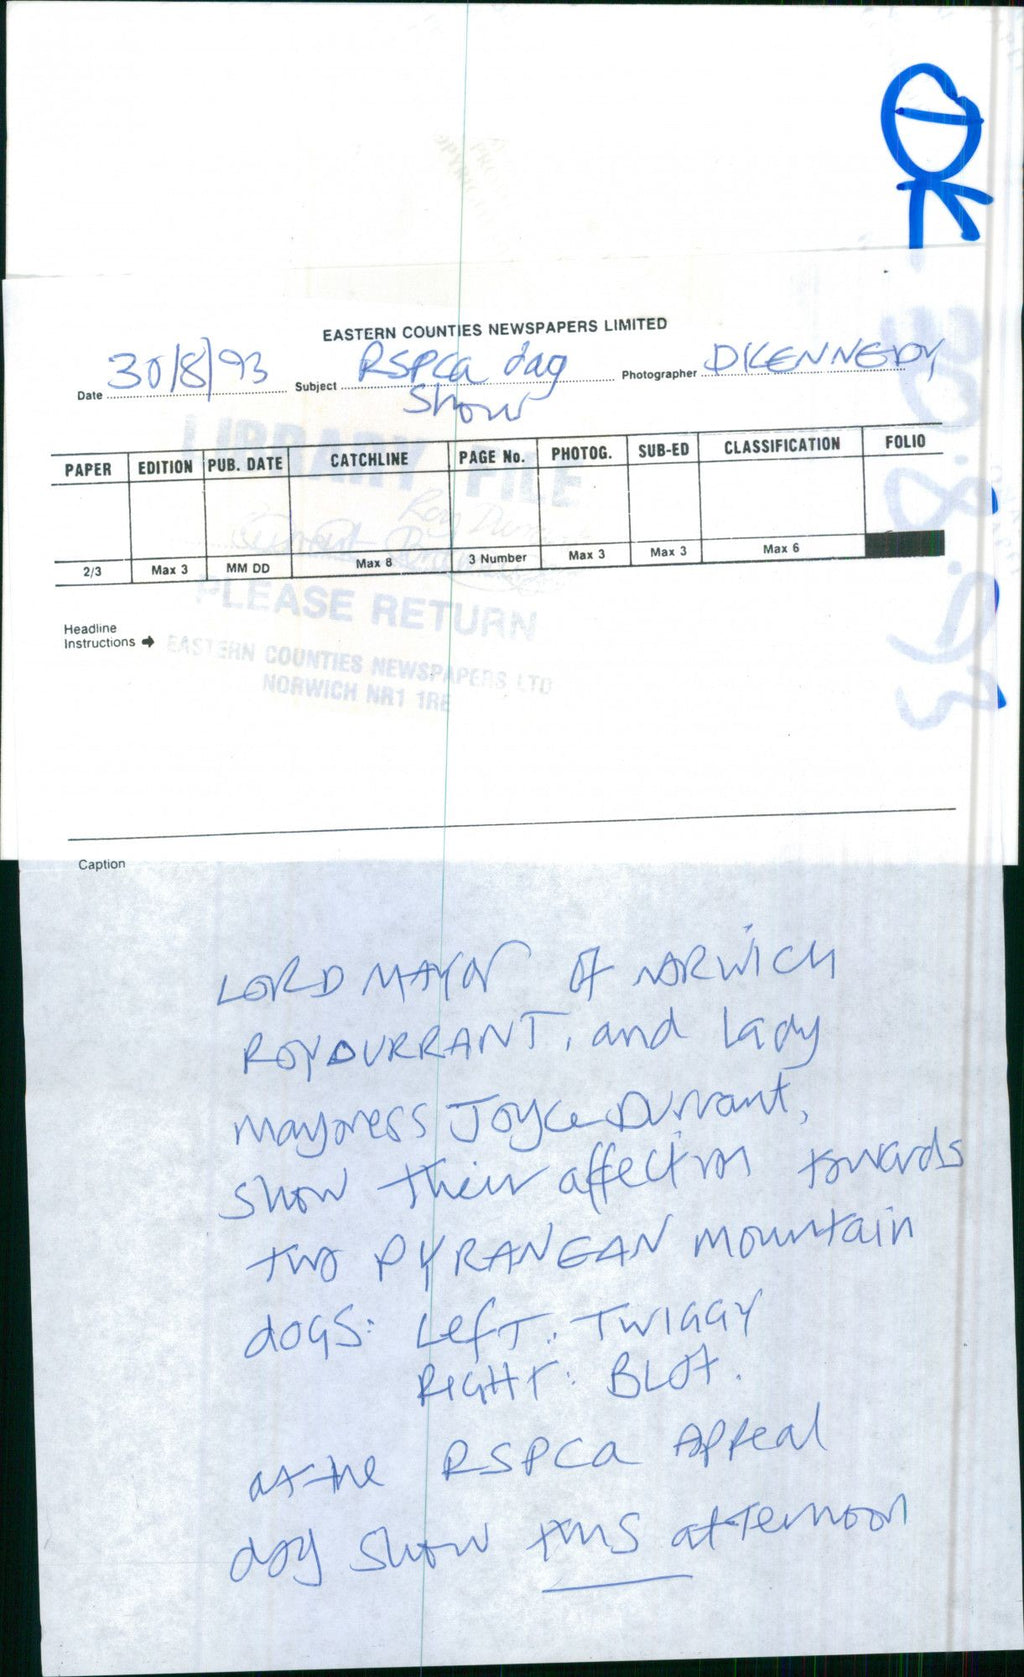 EASTERN COUNTIES NEWSPAPERS LIMITED
Date 30/8/93 Subject RSPCA dog show Photographer D KENNEDY
PAPER EDITION PUB. DATE CATCHLINE PAGE No. PHOTOG. SUB-ED CLASSIFICATION FOLIO
2/3 Max 3 MM DD Max 8 3 Number Max 3 Max 3 Max 6
LIBRARY FILE
PLEASE RETURN
EASTERN COUNTIES NEWSPAPERS LTD
NORWICH NR1 1RE
Headline
Instructions →
Caption
LORD MAYOR OF NORWICH
ROY DURRANT, and Lady
Mayoress Joyce Durrant,
show their affection towards
two PYRANEAN mountain
dogs: Left: TWIGGY
Right: BLOT.
at the RSPCA Appeal
dog show this afternoon